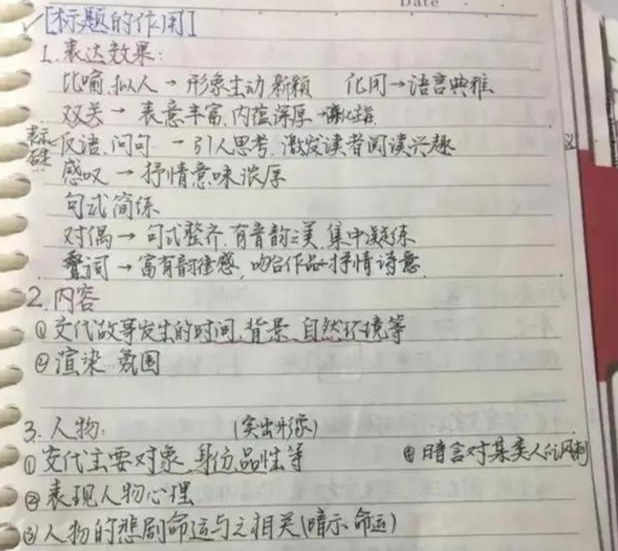 Date
[标题的作用]
1.表达效果:
比喻.拟人→形象生动.新颖 化用→语言典雅
双关→表意丰富.内蕴深厚
反语.问句→引人思考.激发读者阅读兴趣
感叹→抒情意味浓厚
句式简练
对偶→句式整齐.有音韵之美.集中凝练
叠词→富有韵律感,吻合作品抒情诗意.
2.内容
①交代故事发生的时间.背景.自然环境等
②渲染 氛围
3.人物: (突出形象)
①交代主要对象.身份.品性等 ④暗含对某类人的讽刺
②表现人物心理
③人物的悲剧命运与之相关(暗示.命运)